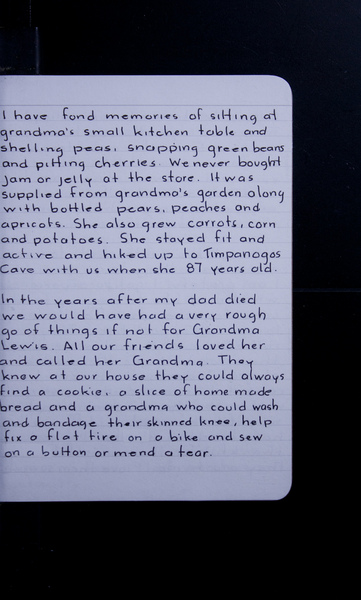 I have fond memories of sitting at
grandma's small kitchen table and
shelling peas, snapping green beans
and pitting cherries. We never bought
jam or jelly at the store. It was
supplied from grandma's garden along
with bottled pears, peaches and
apricots. She also grew carrots, corn
and potatoes. She stayed fit and
active and hiked up to Timpanogos
Cave with us when she 87 years old.
In the years after my dad died
we would have had a very rough
go of things if not for Grandma
Lewis. All our friends loved her
and called her Grandma. They
knew at our house they could always
find a cookie, a slice of home made
bread and a grandma who could wash
and bandage their skinned knee, help
fix a flat tire on a bike and sew
on a button or mend a tear.